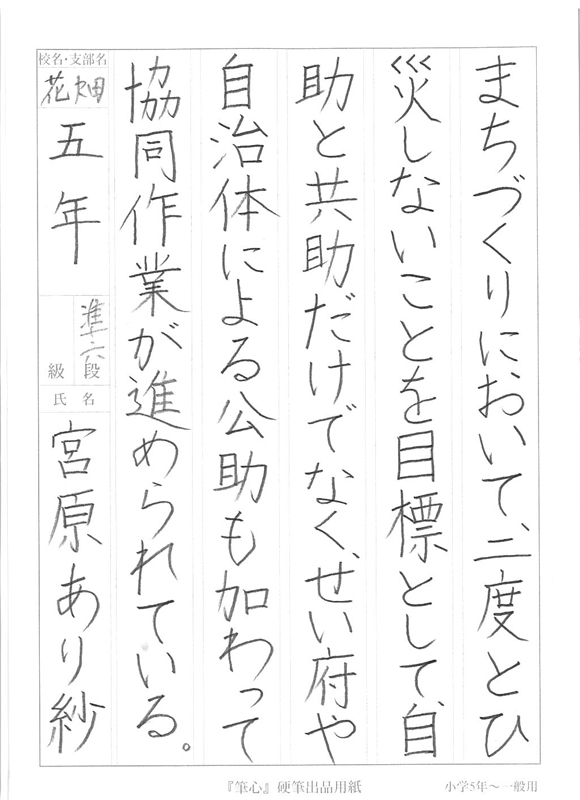 まちづくりにおいて、二度とひ
災しないことを目標として、自
助と共助だけでなく、せい府や
自治体による公助も加わって
協同作業が進められている。
校名・支部名
花畑
五年
準六段
級
氏名
宮原あり紗
『筆心』硬筆出品用紙
小学5年〜一般用